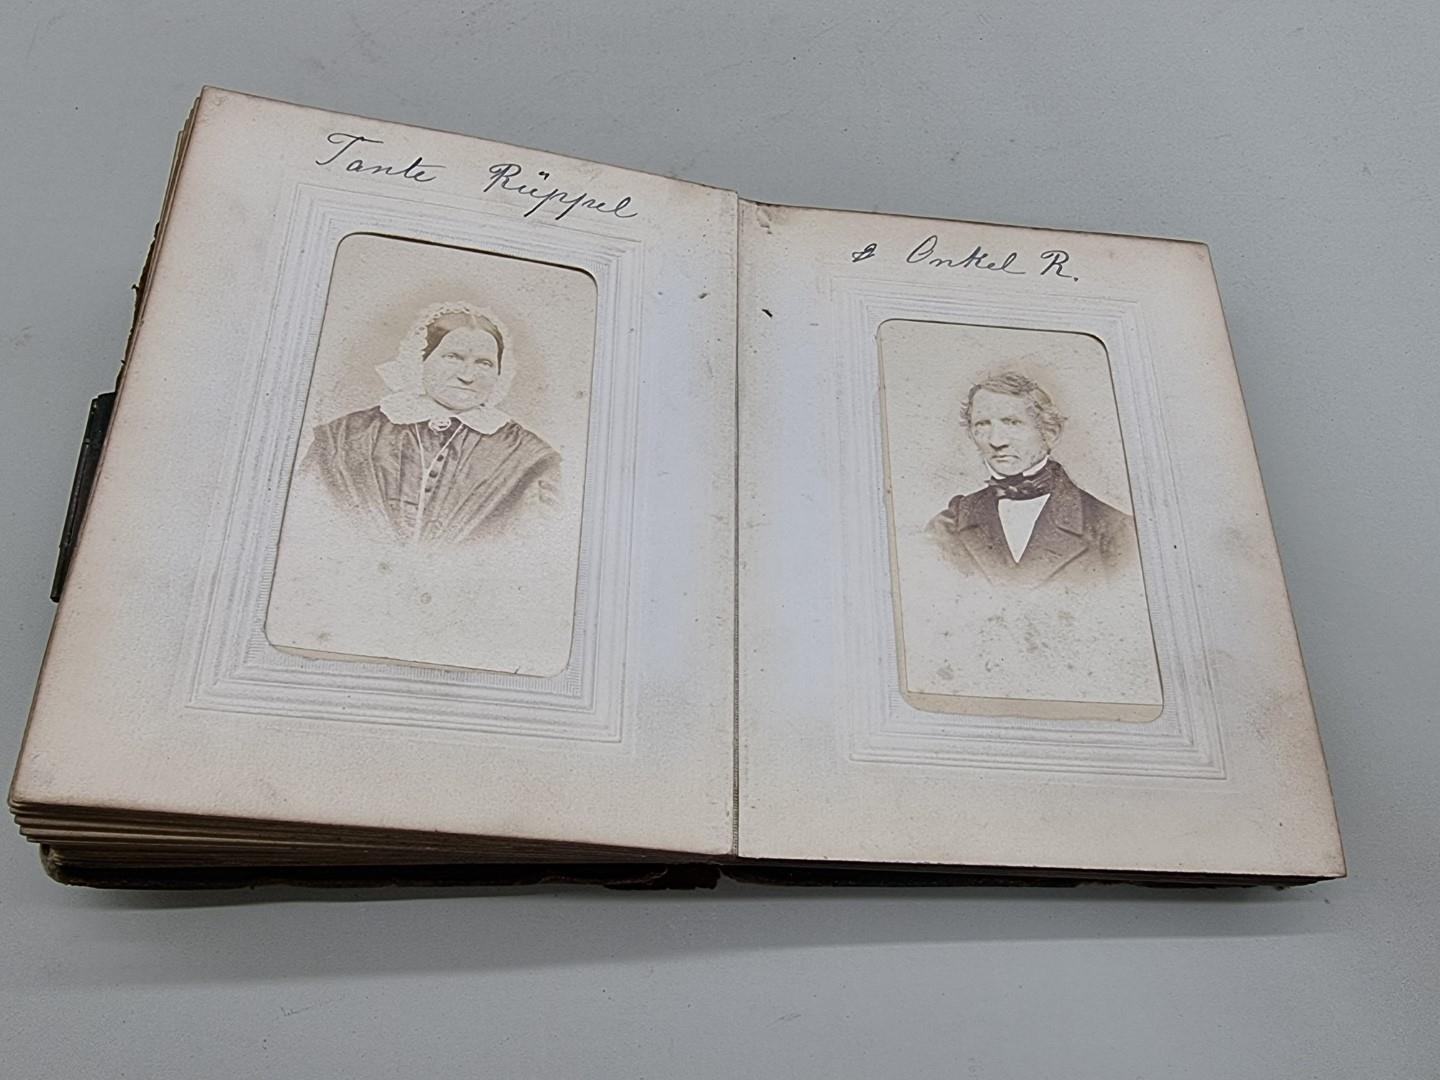 Tante Rüppel
& Onkel R.